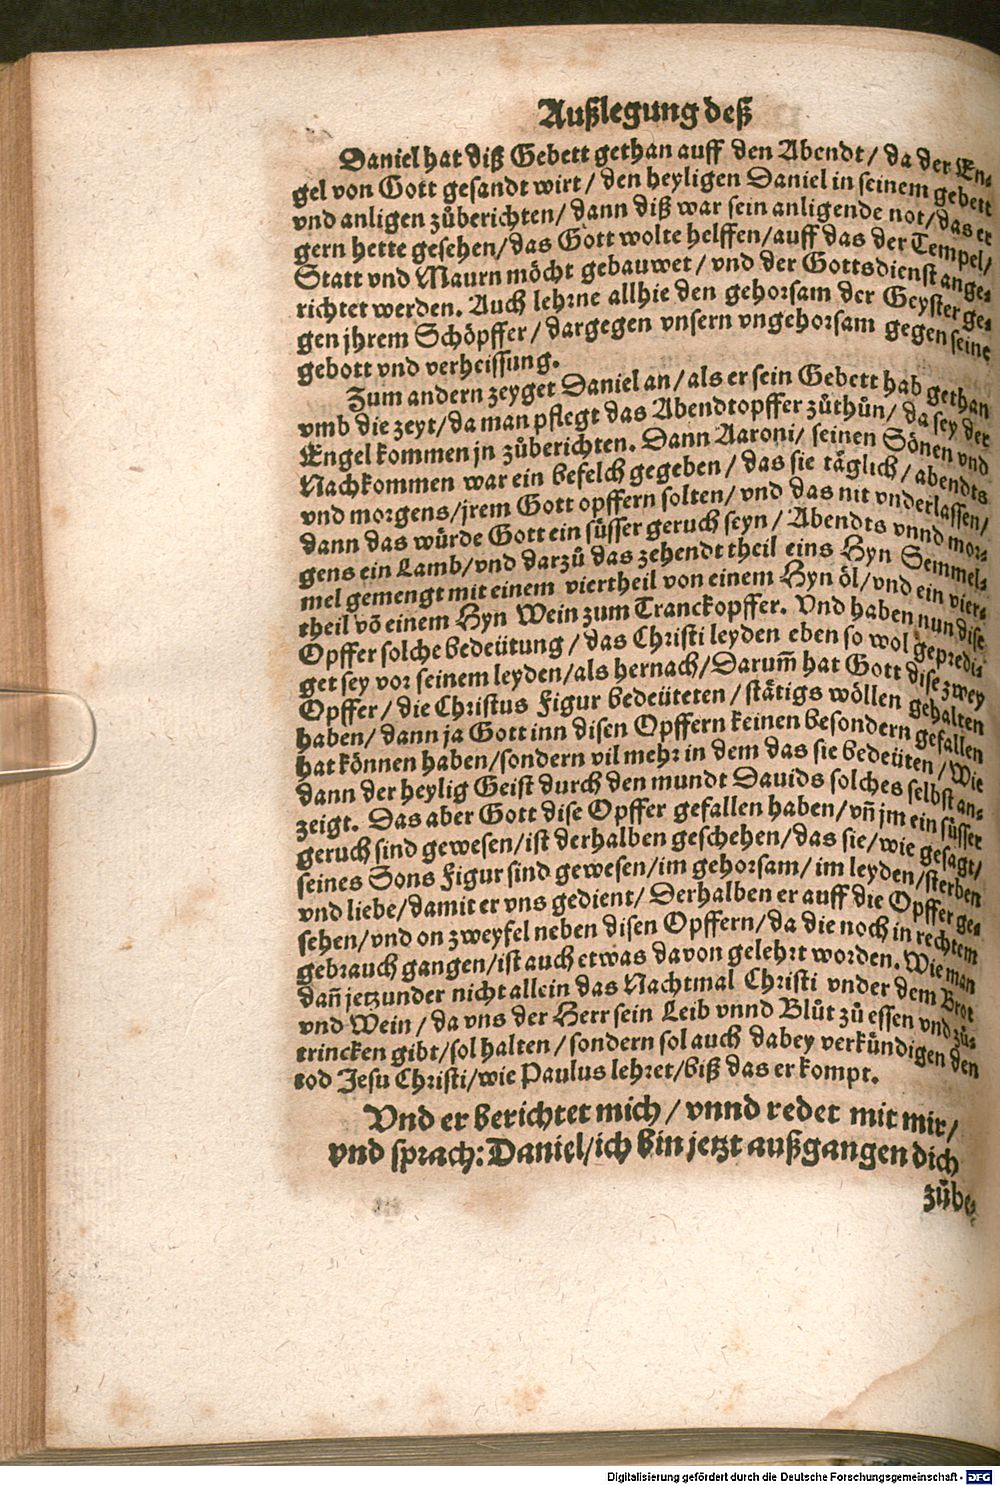 Außlegung deß
Daniel hat diß Gebett gethan auff den Abendt/ da der En-
gel von Gott gesandt wirt/ den heyligen Daniel in seinem gebett
vnd anligen zůberichten/ dann diß war sein anligende not/ das er
gern hette gesehen/ das Gott wolte helffen/ auff das der Tempel/
Statt vnd Maurn möcht gebauwet/ vnd der Gottsdienst ange-
richtet werden. Auch lehrne allhie den gehorsam der Geyster ge-
gen jhrem Schöpffer/ dargegen vnsern vngehorsam gegen seine
gebott vnd verheissung.
Zum andern zeyget Daniel an/ als er sein Gebett hab gethan
vmb die zeyt/ da man pflegt das Abendtopffer zůthůn/ da sey der
Engel kommen jn zůberichten. Dann Aaroni/ seinen Sönen vnd
Nachkommen war ein befelch gegeben/ das sie täglich/ abendts
vnd morgens/ jrem Gott opffern solten/ vnd das nit vnderlassen/
dann das würde Gott ein süsser geruch seyn/ Abendts vnnd mor-
gens ein Lamb/ vnd darzů das zehendt theil eins Hyn Semmel-
mel gemengt mit einem viertheil von einem Hyn öl/ vnd ein vier-
theil võ einem Hyn Wein zum Tranckopffer. Vnd haben nun dise
Opffer solche bedeütung/ das Christi leyden eben so wol gepredi-
get sey vor seinem leyden/ als hernach/ Darum̃ hat Gott dise zwey
Opffer/ die Christus Figur bedeüteten/ stätigs wöllen gehalten
haben/ dann ja Gott inn disen Opffern keinen besondern gefallen
hat können haben/ sondern vil mehr in dem das sie bedeüten/ Wie
dann der heylig Geist durch den mundt Dauids solches selbst an-
zeigt. Das aber Gott dise Opffer gefallen haben/ vñ jm ein süsser
geruch sind gewesen/ ist derhalben geschehen/ das sie/ wie gesagt/
seines Sons Figur sind gewesen/ im gehorsam/ im leyden/ sterben
vnd liebe/ damit er vns gedient/ Derhalben er auff die Opffer ge-
sehen/ vnd on zweyfel neben disen Opffern/ da die noch in rechtem
gebrauch gangen/ ist auch etwas davon gelehrt worden. Wie man
dañ jetzunder nicht allein das Nachtmal Christi vnder dem Brot
vnd Wein/ da vns der Herr sein Leib vnnd Blůt zů essen vnd zů-
trincken gibt/ sol halten/ sondern sol auch dabey verkündigen den
tod Jesu Christi/ wie Paulus lehret/ biß das er kompt.
Vnd er berichtet mich/ vnnd redet mit mir/
vnd sprach: Daniel/ ich bin jetzt außgangen dich
zůbe-
Digitalisierung gefördert durch die Deutsche Forschungsgemeinschaft - DFG